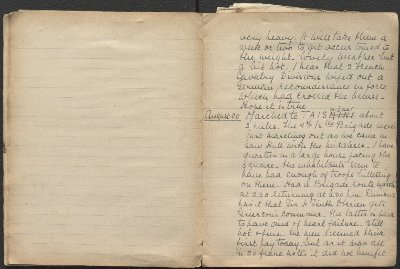 very heavy. It will take them a
week or two to get accustomed to
the weight. Lovely weather but
a bit hot. I hear that 2 French
Cavalry Divisions wiped out a
German reconnaissance in force
which had crossed the Meuse.
Hope it is true.
August 20 Marched to about
3 miles. The Brigade were
just marching out as we came in
Saw Hull with the Middlesex. I have
quarters in a large house facing the
square. The inhabitants seem to
have had enough of troops billeting
on them. Had a Brigade route march
at 2.30 returning at 5.30 p.m. Rumour
has it that Sir H. Smith Dorrien gets
Grierson's command. The latter is said
to have died of heart failure. Still
hot & fine. The men received their
first pay today, but as it was all
in 20 franc notes it did not benefit